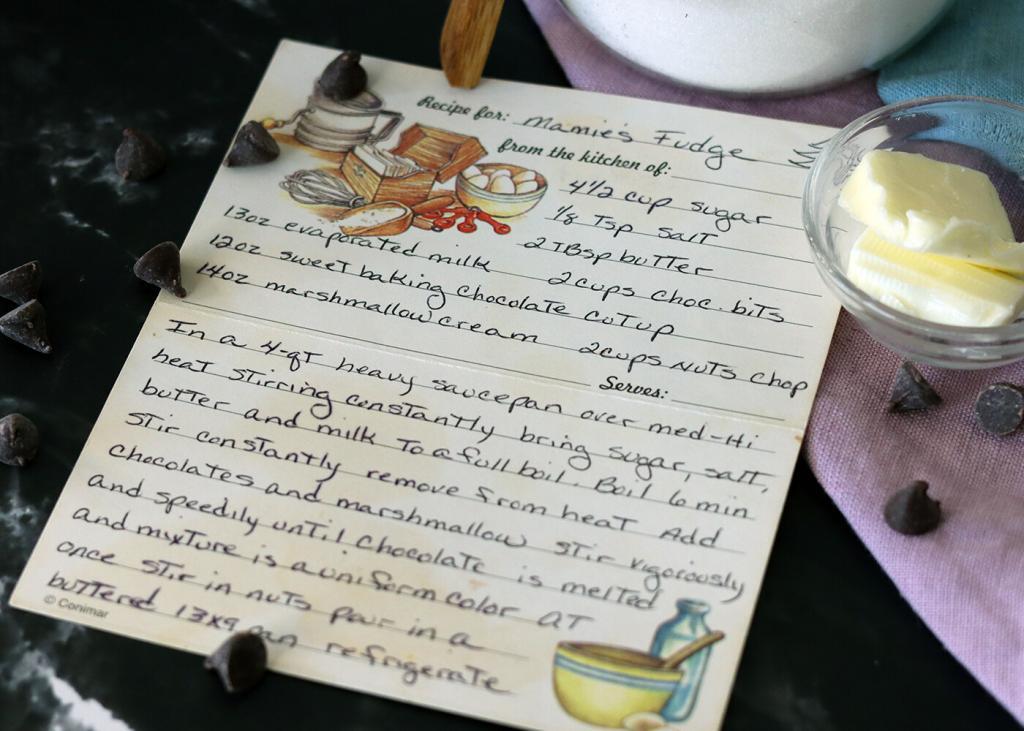 Recipe for: Mamie's Fudge
from the kitchen of:
4 1/2 cup sugar
1/8 Tsp salt
13oz evaporated milk 2 TBsp butter
12oz sweet baking chocolate cut up 2 cups choc. bits
14oz marshmallow cream 2 cups nuts chop
Serves:
In a 4-qt heavy saucepan over med-Hi
heat stirring constantly bring sugar, salt,
butter and milk To a full boil. Boil 6 min
stir constantly remove from heat Add
chocolates and marshmallow stir vigorously
and speedily until chocolate is melted
and mixture is a uniform color AT
once stir in nuts pour in a
buttered 13x9 pan refrigerate
© Conimar